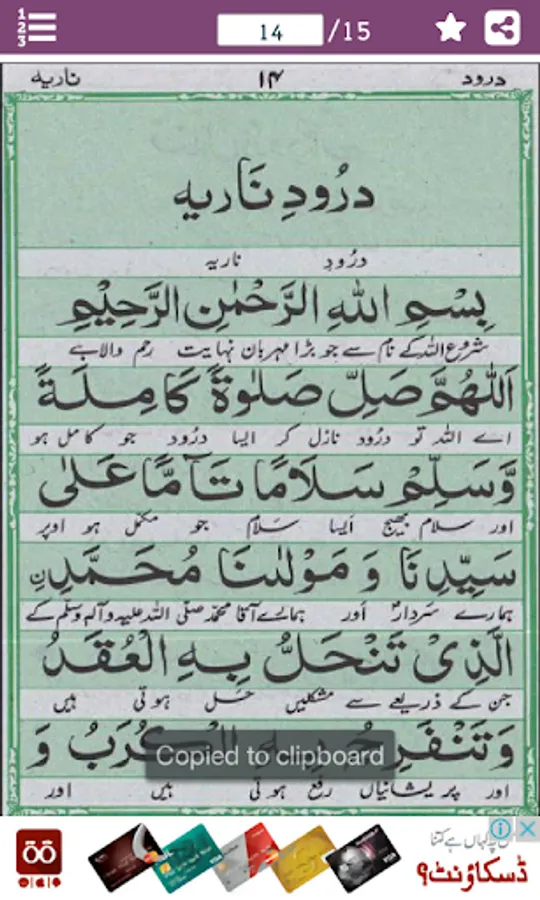 14 /15
درود ۱۴ ناریہ
درُودِ نَاریہ
درُودِ ناریہ
بِسْمِ اللهِ الرَّحْمٰنِ الرَّحِيْمِ
شروع اللہ کے نام سے جو بڑا مہربان نہایت رحم والا ہے
اَللّٰهُمَّ صَلِّ صَلٰوةً كَامِلَةً
اے اللہ تو درُود نازل کر ایسا درُود جو کامل ہو
وَّسَلِّمْ سَلَامًا تَآمًّا عَلٰى
اور سلام بھیج ایسا سَلام جو مکمل ہو اوپر
سَيِّدِنَا وَ مَوْلٰىنَا مُحَمَّدِنِ
ہمارے سَردار اور ہمارے آقا محمّد صلّی اللہ علیہ وآلہٖ وسلم کے
الَّذِىْ تَنْحَلُّ بِهِ الْعُقَدُ
جن کے ذریعے سے مشکلیں حَل ہوتی ہیں
وَتَنْفَرِجُ بِهِ الْكُرَبُ وَ
Copied to clipboard
اور پریشانیاں رفع ہوتی ہیں اور
کہاں ہے کتنا
ڈسکاؤنٹ؟